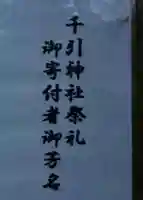 千引神社祭礼
御寄付者御芳名